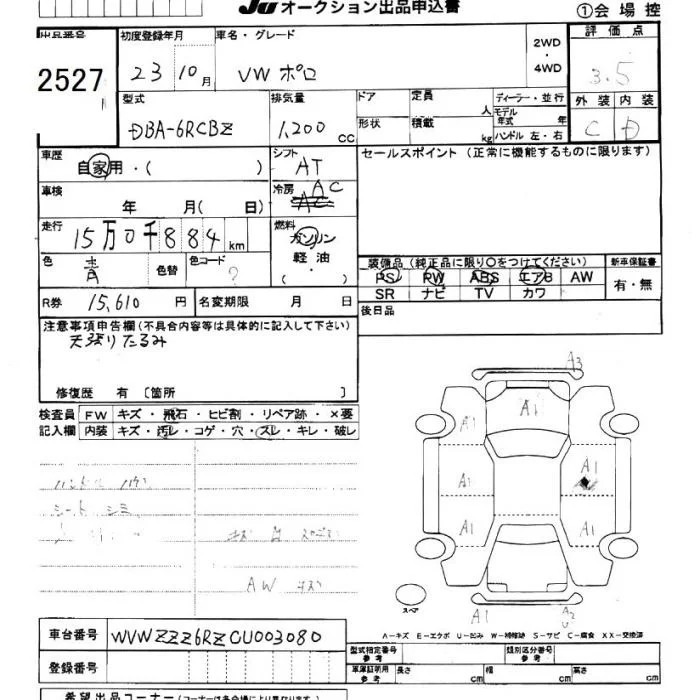 JU オークション出品申込書 ①会場控
出品番号 初度登録年月 車名・グレード 2WD・4WD 評価点
2527 23 10月 VW ポロ 3.5
型式 排気量 ドア 定員 人 ディーラー・並行 外装 内装
DBA-6RCBZ 1,200 cc 形状 積載 kg モデル年式 年 ハンドル 左・右 C D
車歴 自家用・( ) シフト AT セールスポイント (正常に機能するものに限ります)
車検 年 月( 日) 冷房 AC
走行 15万0千884km 燃料 ガソリン
軽油・( )
色 青 色替 色コード ? 装備品 (純正品に限り○をつけてください) 新車保証書
PS PW ABS エアB AW 有・無
SR ナビ TV カワ
R券 15,610 円 名変期限 月 日 後日品
注意事項申告欄 (不具合内容等は具体的に記入して下さい)
天張りたるみ
修復歴 有 〔箇所 〕
検査員 FW キズ・飛石・ヒビ割・リペア跡・×要
記入欄 内装 キズ・汚レ・コゲ・穴・スレ・キレ・破レ
A3
A1
A1
A1 A1
A1 A1
シート シミ
AW キズ
スペア
A1 A2
A－キズ E－エクボ U－凹み W－補修跡 S－サビ C－腐食 XX－交換済
車台番号 WVWZZZ6RZCU003080 型式指定番号 参考 類別区分番号 参考
登録番号 車庫証明用 参考 長さ cm 幅 cm 高さ cm
希望出品コーナー (コーナーは各会場により異なります)